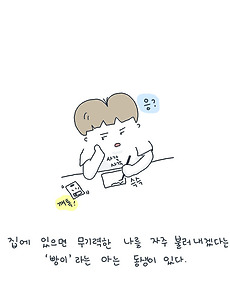 응?
사각
사각
슥슥
깨톡!
집에 있으면 무기력한 나를 자주 불러내겠다는
'방이'라는 아는 동생이 있다.